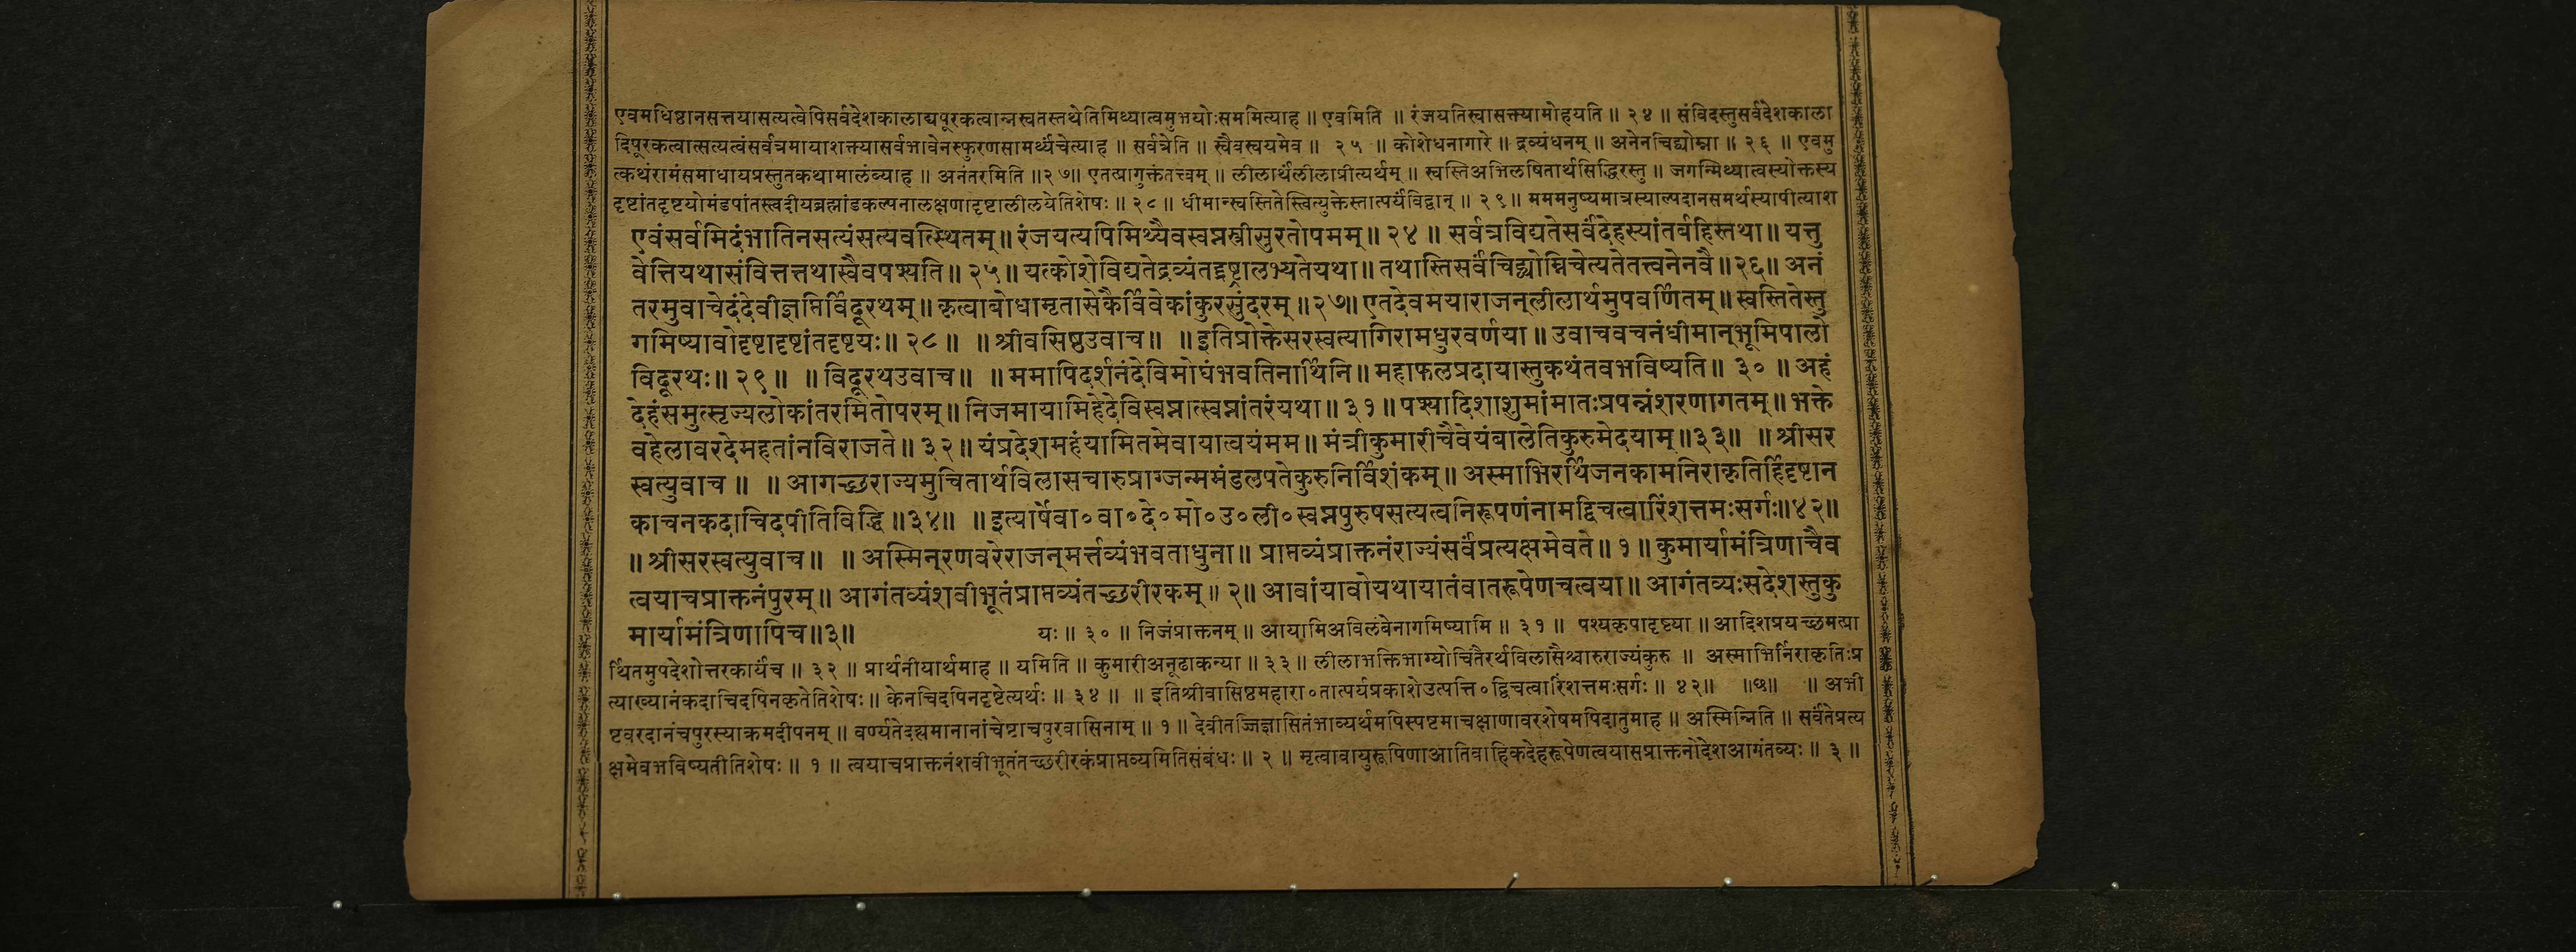 एवमधिष्ठानसत्तयासत्यत्वेपिसर्वदेशकालाद्यपूरकत्वान्नस्वतस्तथेतिमिथ्यात्वमुभयोःसममित्याह ॥ एवमिति ॥ रंजयतिस्वासक्त्यामोहयति ॥ २४ ॥ संविदस्तुसर्वदेशकाला
दिपूरकत्वात्सत्यत्वंसर्वत्रमायाशक्त्यासर्वभावेनस्फुरणसामर्थ्यंचेत्याह ॥ सर्वत्रेति ॥ स्वैवस्वयमेव ॥ २५ ॥ कोशेधनागारे ॥ द्रव्यंधनम् ॥ अनेनचिद्योम्ना ॥ २६ ॥ एवमु
त्कथंरामंसमाधायप्रस्तुतकथामालंब्याह ॥ अनंतरमिति ॥२७॥ एतत्प्रागुक्तंतत्त्वम् ॥ लीलार्थंलीलाप्रीत्यर्थम् ॥ स्वस्तिअभिलषितार्थसिद्धिरस्तु ॥ जगन्मिथ्यात्वस्योक्तस्य
दृष्टांतदृष्टयोमंडपांतस्त्वदीयब्रह्मांडकल्पनालक्षणादृष्टालीलयेतिशेषः ॥ २८ ॥ धीमान्स्वस्तितेस्त्वित्युक्तेस्तात्पर्यंविद्वान् ॥ २९ ॥ मममनुष्यमात्रस्याल्पदानसमर्थस्यापीत्याश
एवंसर्वमिदंभातिनसत्यंसत्यवत्स्थितम् ॥ रंजयत्यपिमिथ्यैवस्वप्नस्त्रीसुरतोपमम् ॥ २४ ॥ सर्वत्रविद्यतेसर्वंदेहस्यांतर्बहिस्तथा ॥ यत्तु
वेत्तियथासंवित्तत्तथास्वैवपश्यति ॥ २५ ॥ यत्कोशेविद्यतेद्रव्यंतद्द्रष्ट्रालभ्यतेयथा ॥ तथास्तिसर्वंचिद्व्योम्निचेत्यतेतत्त्वनेनवै ॥२६॥ अनं
तरमुवाचेदंदेवीज्ञप्तिर्विदूरथम् ॥ कृत्वाबोधामृतासेकैर्विवेकांकुरसुंदरम् ॥२७॥ एतदेवमयाराजन्लीलार्थमुपवर्णितम् ॥ स्वस्तितेस्तु
गमिष्यावोदृष्टादृष्टांतदृष्टयः ॥ २८ ॥ ॥ श्रीवसिष्ठउवाच ॥ ॥ इतिप्रोक्तेसरस्वत्यागिरामधुरवर्णया ॥ उवाचवचनंधीमान्भूमिपालो
विदूरथः ॥ २९ ॥ ॥ विदूरथउवाच ॥ ॥ ममापिदर्शनंदेविमोघंभवतिनार्थिनि ॥ महाफलप्रदायास्तुकथंतवभविष्यति ॥ ३० ॥ अहं
देहंसमुत्सृज्यलोकांतरमितोपरम् ॥ निजमायामिहेदेविस्वप्नात्स्वप्नांतरंयथा ॥ ३१ ॥ पश्यादिशाशुमांमातःप्रपन्नंशरणागतम् ॥ भक्ते
वहेलावरदेमहतांनविराजते ॥ ३२ ॥ यंप्रदेशमहंयामितमेवायात्वयंमम ॥ मंत्रीकुमारीचैवेयंबालेतिकुरुमेदयाम् ॥३३॥ ॥ श्रीसर
स्वत्युवाच ॥ ॥ आगच्छराज्यमुचितार्थविलासचारुप्राग्जन्ममंडलपतेकुरुनिर्विशंकम् ॥ अस्माभिरर्थिजनकामनिराकृतिर्हिदृष्टान
काचनकदाचिदपीतिविद्धि ॥३४॥ ॥ इत्यार्षेवा॰ वा॰ दे॰ मो॰ उ॰ ली॰ स्वप्नपुरुषसत्यत्वनिरूपणंनामद्विचत्वारिंशत्तमःसर्गः ॥४२॥
॥ श्रीसरस्वत्युवाच ॥ ॥ अस्मिन्रणवरेराजन्मर्त्तव्यंभवताधुना ॥ प्राप्तव्यंप्राक्तनंराज्यंसर्वंप्रत्यक्षमेवते ॥ १ ॥ कुमार्यामंत्रिणाचैव
त्वयाचप्राक्तनंपुरम् ॥ आगंतव्यंशवीभूतंप्राप्तव्यंतच्छरीरकम् ॥ २॥ आवांयावोयथायातंवातरूपेणचत्वया ॥ आगंतव्यःसदेशस्तुकु
मार्यामंत्रिणापिच ॥३॥ यः ॥ ३० ॥ निजंप्राक्तनम् ॥ आयामिअविलंबेनागमिष्यामि ॥ ३१ ॥ पश्यकृपादृष्ट्या ॥ आदिशप्रयच्छमत्प्रा
र्थितमुपदेशोत्तरकार्यंच ॥ ३२ ॥ प्रार्थनीयार्थमाह ॥ यमिति ॥ कुमारीअनूढाकन्या ॥ ३३ ॥ लीलाभक्तिभाग्योचितैरर्थविलासैश्चारुराज्यंकुरु ॥ अस्माभिर्निराकृतिःप्र
त्याख्यानंकदाचिदपिनकृतेतिशेषः ॥ केनचिदपिनदृष्टेत्यर्थः ॥ ३४ ॥ ॥ इतिश्रीवासिष्ठमहारा॰तात्पर्यप्रकाशेउत्पत्ति॰द्विचत्वारिंशत्तमःसर्गः ॥ ४२॥ ॥छ॥ ॥ अभी
ष्टवरदानंचपुरस्याक्रमदीपनम् ॥ वर्ण्यतेदह्यमानानांचेष्टाचपुरवासिनाम् ॥ १ ॥ देवीतज्जिज्ञासितंभाव्यर्थमपिस्पष्टमाचक्षाणावरशेषमपिदातुमाह ॥ अस्मिन्निति ॥ सर्वंतेप्रत्य
क्षमेवभविष्यतीतिशेषः ॥ १ ॥ त्वयाचप्राक्तनंशवीभूतंतच्छरीरकंप्राप्तव्यमितिसंबंधः ॥ २ ॥ मृत्वावायुरूपिणाआतिवाहिकदेहरूपेणत्वयासप्राक्तनोदेशआगंतव्यः ॥ ३ ॥